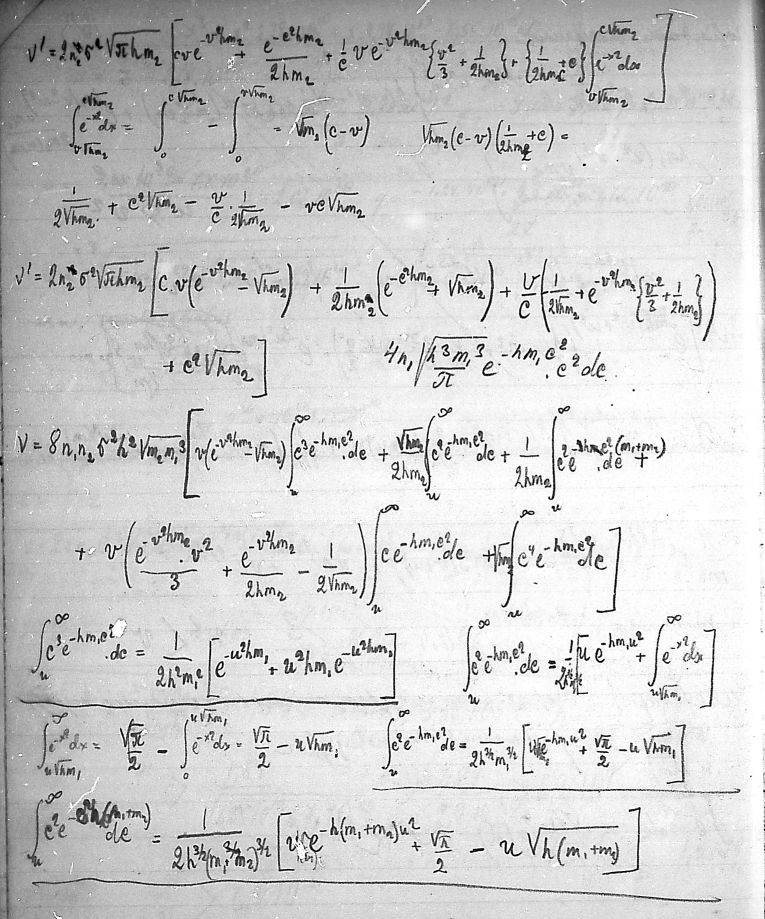 ν' = 2n₂σ²√(πhm₂) [cve^{-v²hm₂} + e^{-c²hm₂}/(2hm₂) + (1/c) v e^{-v²hm₂} {v²/3 + 1/(2hm₂)} + {1/(2hm₂c) + c} ∫_{v√hm₂}^{c√hm₂} e^{-x²} dx]
∫_{v√hm₂}^{c√hm₂} e^{-x²} dx = ∫₀^{c√hm₂} − ∫₀^{v√hm₂} = √hm₂ (c−v)    √hm₂ (c−v)(1/(2hm₂c) + c) =
1/(2√hm₂) + c²√hm₂ − (v/c)·1/(2√hm₂) − vc√hm₂
ν' = 2n₂σ²√(πhm₂) [c.v(e^{-v²hm₂} − √hm₂) + 1/(2hm₂) (e^{-c²hm₂} + √hm₂) + (v/c)(1/(2√hm₂) + e^{-v²hm₂} {v²/3 + 1/(2hm₂)})
+ c²√hm₂]    4n₁√(h³m₁³/π) e^{-hm₁c²}.c² dc
ν = 8n₁n₂σ²h²√(m₂m₁³) [v(e^{-v²hm₂} − √hm₂) ∫_u^∞ c³e^{-hm₁c²}.dc + √hm₂/(2hm₂) ∫_u^∞ c²e^{-hm₁c²}dc + 1/(2hm₂) ∫_u^∞ c²e^{-hc²(m₁+m₂)}.dc +
+ v(e^{-v²hm₂}.v²/3 + e^{-v²hm₂}/(2hm₂) − 1/(2√hm₂)) ∫_u^∞ ce^{-hm₁c²}.dc + √hm₂ ∫_u^∞ c⁴e^{-hm₁c²}dc]
∫_u^∞ c³e^{-hm₁c²}.dc = 1/(2h²m₁²) [e^{-u²hm₁} + u²hm₁e^{-u²hm₁}]    ∫_u^∞ c²e^{-hm₁c²}.dc = 1/(2h^{3/2}m₁^{3/2}) [u e^{-hm₁u²} + ∫_{u√hm₁}^∞ e^{-x²}dx]
∫_{u√hm₁}^∞ e^{-x²}dx = √π/2 − ∫₀^{u√hm₁} e^{-x²}dx = √π/2 − u√hm₁    ∫_u^∞ c²e^{-hm₁c²}dc = 1/(2h^{3/2}m₁^{3/2}) [u e^{-hm₁u²} + √π/2 − u√hm₁]
∫_u^∞ c²e^{-c²h(m₁+m₂)}dc = 1/(2h^{3/2}(m₁+m₂)^{3/2}) [u e^{-h(m₁+m₂)u²} + √π/2 − u√(h(m₁+m₂))]